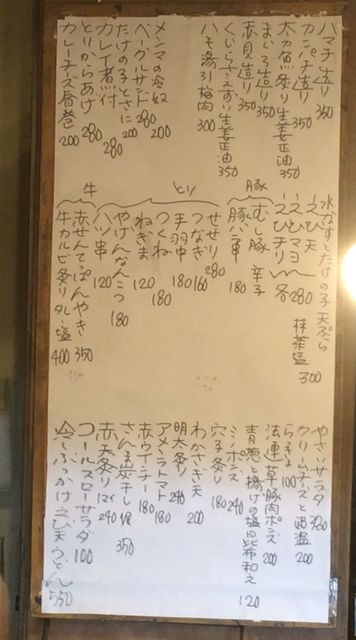 ハマチ造り 350
カンパチ造り 350
太刀魚炙り生姜正油 350
まいろ造り 350
赤貝造り 350
くじらさえずり生姜正油 350
ハモ湯引梅肉 300
メンマの冷奴 200
ベーグルサンド 280
たけの子とさに 200
カレイ煮付 280
とりからあげ 280
カレーチーズ春巻 200
水なすとたけの子天ぷら 抹茶塩 300
えび天
えびマヨ 各280
えびチリ
豚
むし豚 辛子
豚バラ串 180
とり
せせり 280
つなぎ 160
手羽中 180
つくね 180
ねぎま 120
やげんなんこつ 180
牛
ハツ串 120
赤せんてっぽんやき 350
牛カルビ炙りタレ・塩 400
やさいサラダ 380
クリームチーズと酒盗 200
らっきょ 100
法連草豚肉ポンズ 200
青葱と揚げの塩昆布和え 120
ミノポンズ 240
穴子炙り 180
わかさぎ天 200
明太炙り 240
アメーラトマト 180
赤ウインナー 180
さんま炭干し焼 350
赤天炙りマヨ 240
コールスローサラダ 100
冷しぶっかけえび天うどん 550